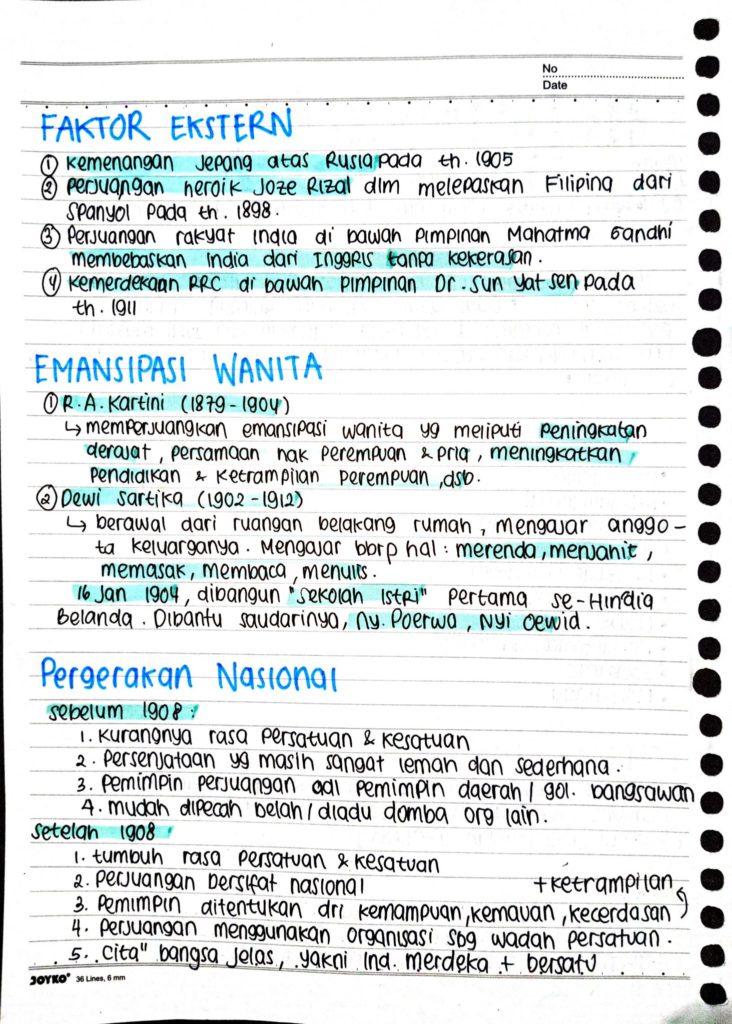 No
Date
FAKTOR EKSTERN
① Kemenangan Jepang atas Rusia pada th. 1905
② Perjuangan heroik Joze Rizal dlm melepaskan Filipina dari
Spanyol pada th. 1898.
③ Perjuangan rakyat India di bawah pimpinan Mahatma Gandhi
membebaskan India dari Inggris tanpa kekerasan.
④ Kemerdekaan RRC di bawah pimpinan Dr. Sun Yat Sen pada
th. 1911
EMANSIPASI WANITA
① R.A. Kartini (1879-1904)
↳ memperjuangkan emansipasi wanita yg meliputi peningkatan
derajat, persamaan hak perempuan & pria, meningkatkan
pendidikan & ketrampilan perempuan, dsb.
② Dewi Sartika (1902-1912)
↳ berawal dari ruangan belakang rumah, mengajar anggo-
ta keluarganya. Mengajar bbrp hal: merenda, menjahit,
memasak, membaca, menulis.
16 Jan 1904, dibangun "Sekolah Istri" pertama se-Hindia
Belanda. Dibantu saudarinya, Ny. Poerwa, Nyi Oewid.
Pergerakan Nasional
sebelum 1908:
1. kurangnya rasa persatuan & kesatuan
2. persenjataan yg masih sangat lemah dan sederhana.
3. pemimpin perjuangan adl pemimpin daerah/gol. bangsawan
4. mudah dipecah belah/diadu domba org lain.
setelah 1908:
1. tumbuh rasa persatuan & kesatuan
2. perjuangan bersifat nasional + ketrampilan
3. Pemimpin ditentukan dri kemampuan, kemauan, kecerdasan
4. Perjuangan menggunakan organisasi sbg wadah persatuan.
5. Cita" bangsa jelas, yakni Ind. merdeka + bersatu
JOYKO® 36 Lines, 6 mm